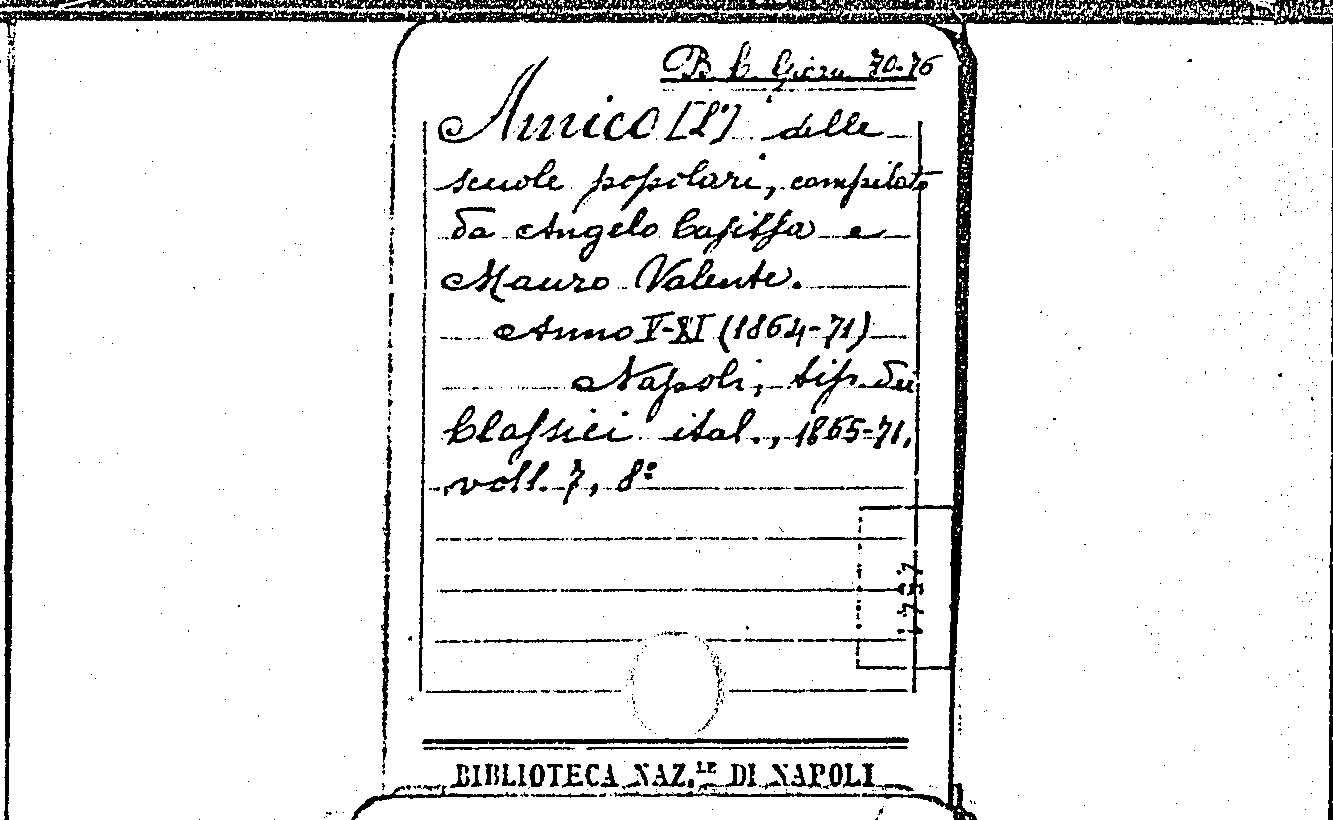 B. C. Giorn. 70-76
Amico [L'] delle
scuole popolari, compilato
da Angelo Capissa e
Mauro Valente.
Anno V-XI (1864-71)
Napoli, tip. dei
Classici ital., 1865-71,
voll. 7, 8º
1757
BIBLIOTECA NAZ.LE DI NAPOLI